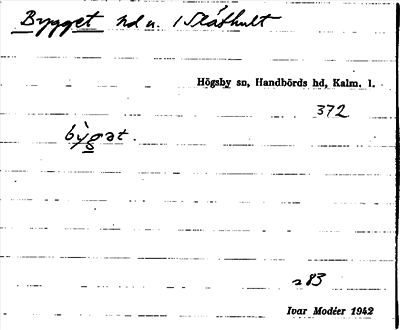 Bygget nd u. 1 Slåthult
Högsby sn, Handbörds hd, Kalm. l.
372
bỳgat.
a 83
Ivar Modéer 1942